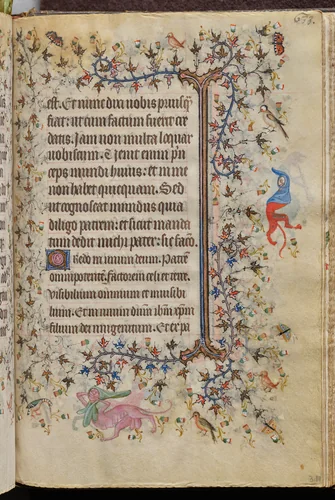 est. Et nunc dixi vobis priusq̃
fiat: ut cum factum fuerit cre
datis. Jam non multa loquar
vobiscum. Venit enim p̃n
ceps mundi huius: et in me
non habet quicquam. Sed
ut cognoscat mundus quia
diligo patrem: et sicut manda
tum dedit michi pater: sic facio.
Credo in unum deum. Patrẽ
omnipotentẽ. factorem celi et terre.
visibilium omnium et invisibi
lium. Et in unum dñm ihm xp̃m
filium dei unigenitum. Et ex pa